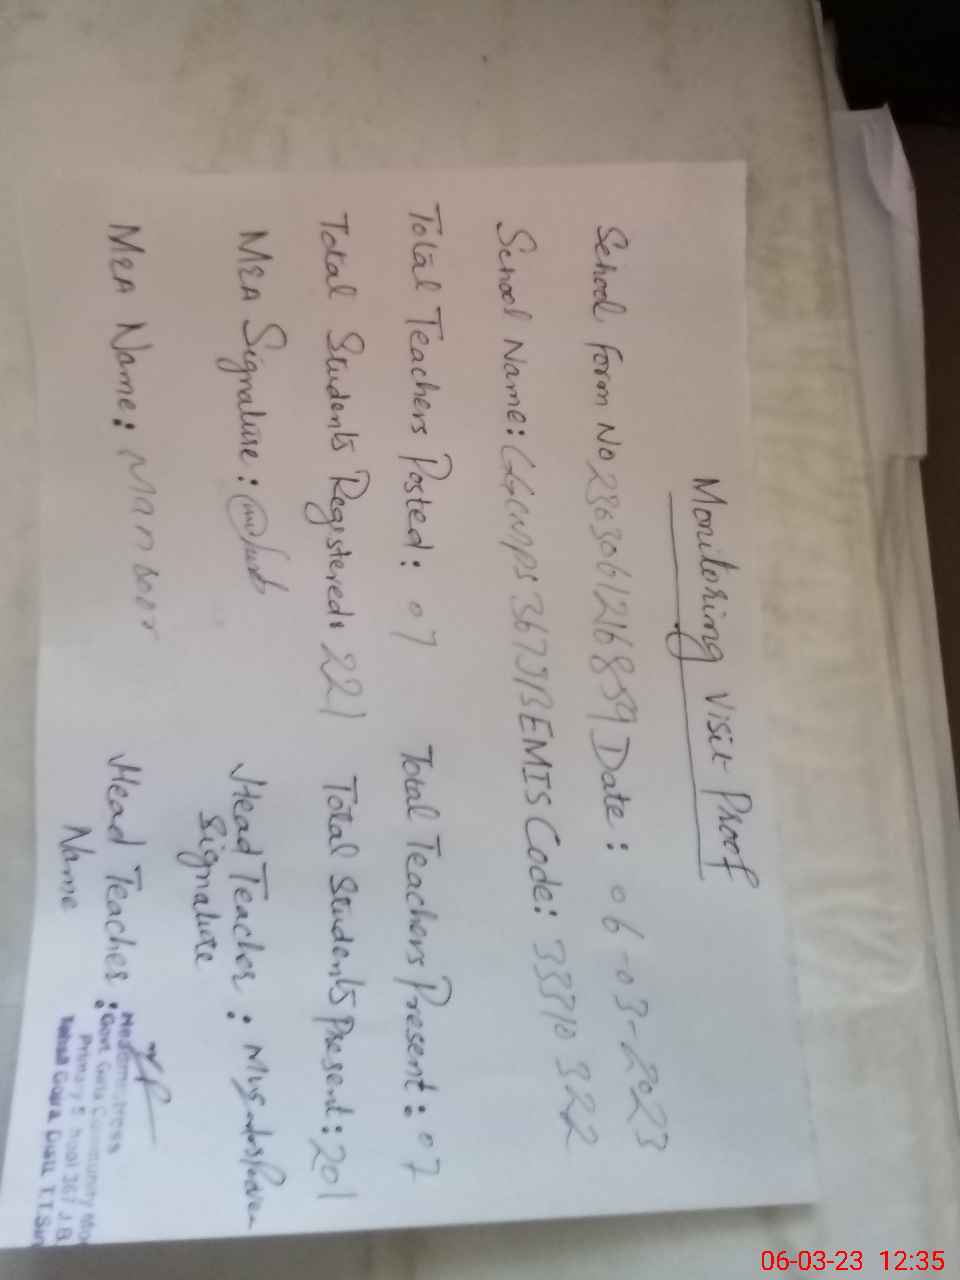 Monitoring Visit Proof
School Form No 2863061216859 Date: 06-03-2023
School Name: GGCMPS 367JB EMIS Code: 33310322
Total Teachers Posted: 07 Total Teachers Present: 07
Total Students Registered: 221 Total Students Present: 201
MEA Signature: Head Teacher :
Signature
MEA Name: Mansoor Head Teacher :
Name
Headmistress
Govt. Girls Community Mo
Primary School 367 J.B.
Tehsil Gojra Distt. T.T.Sin
06-03-23 12:35